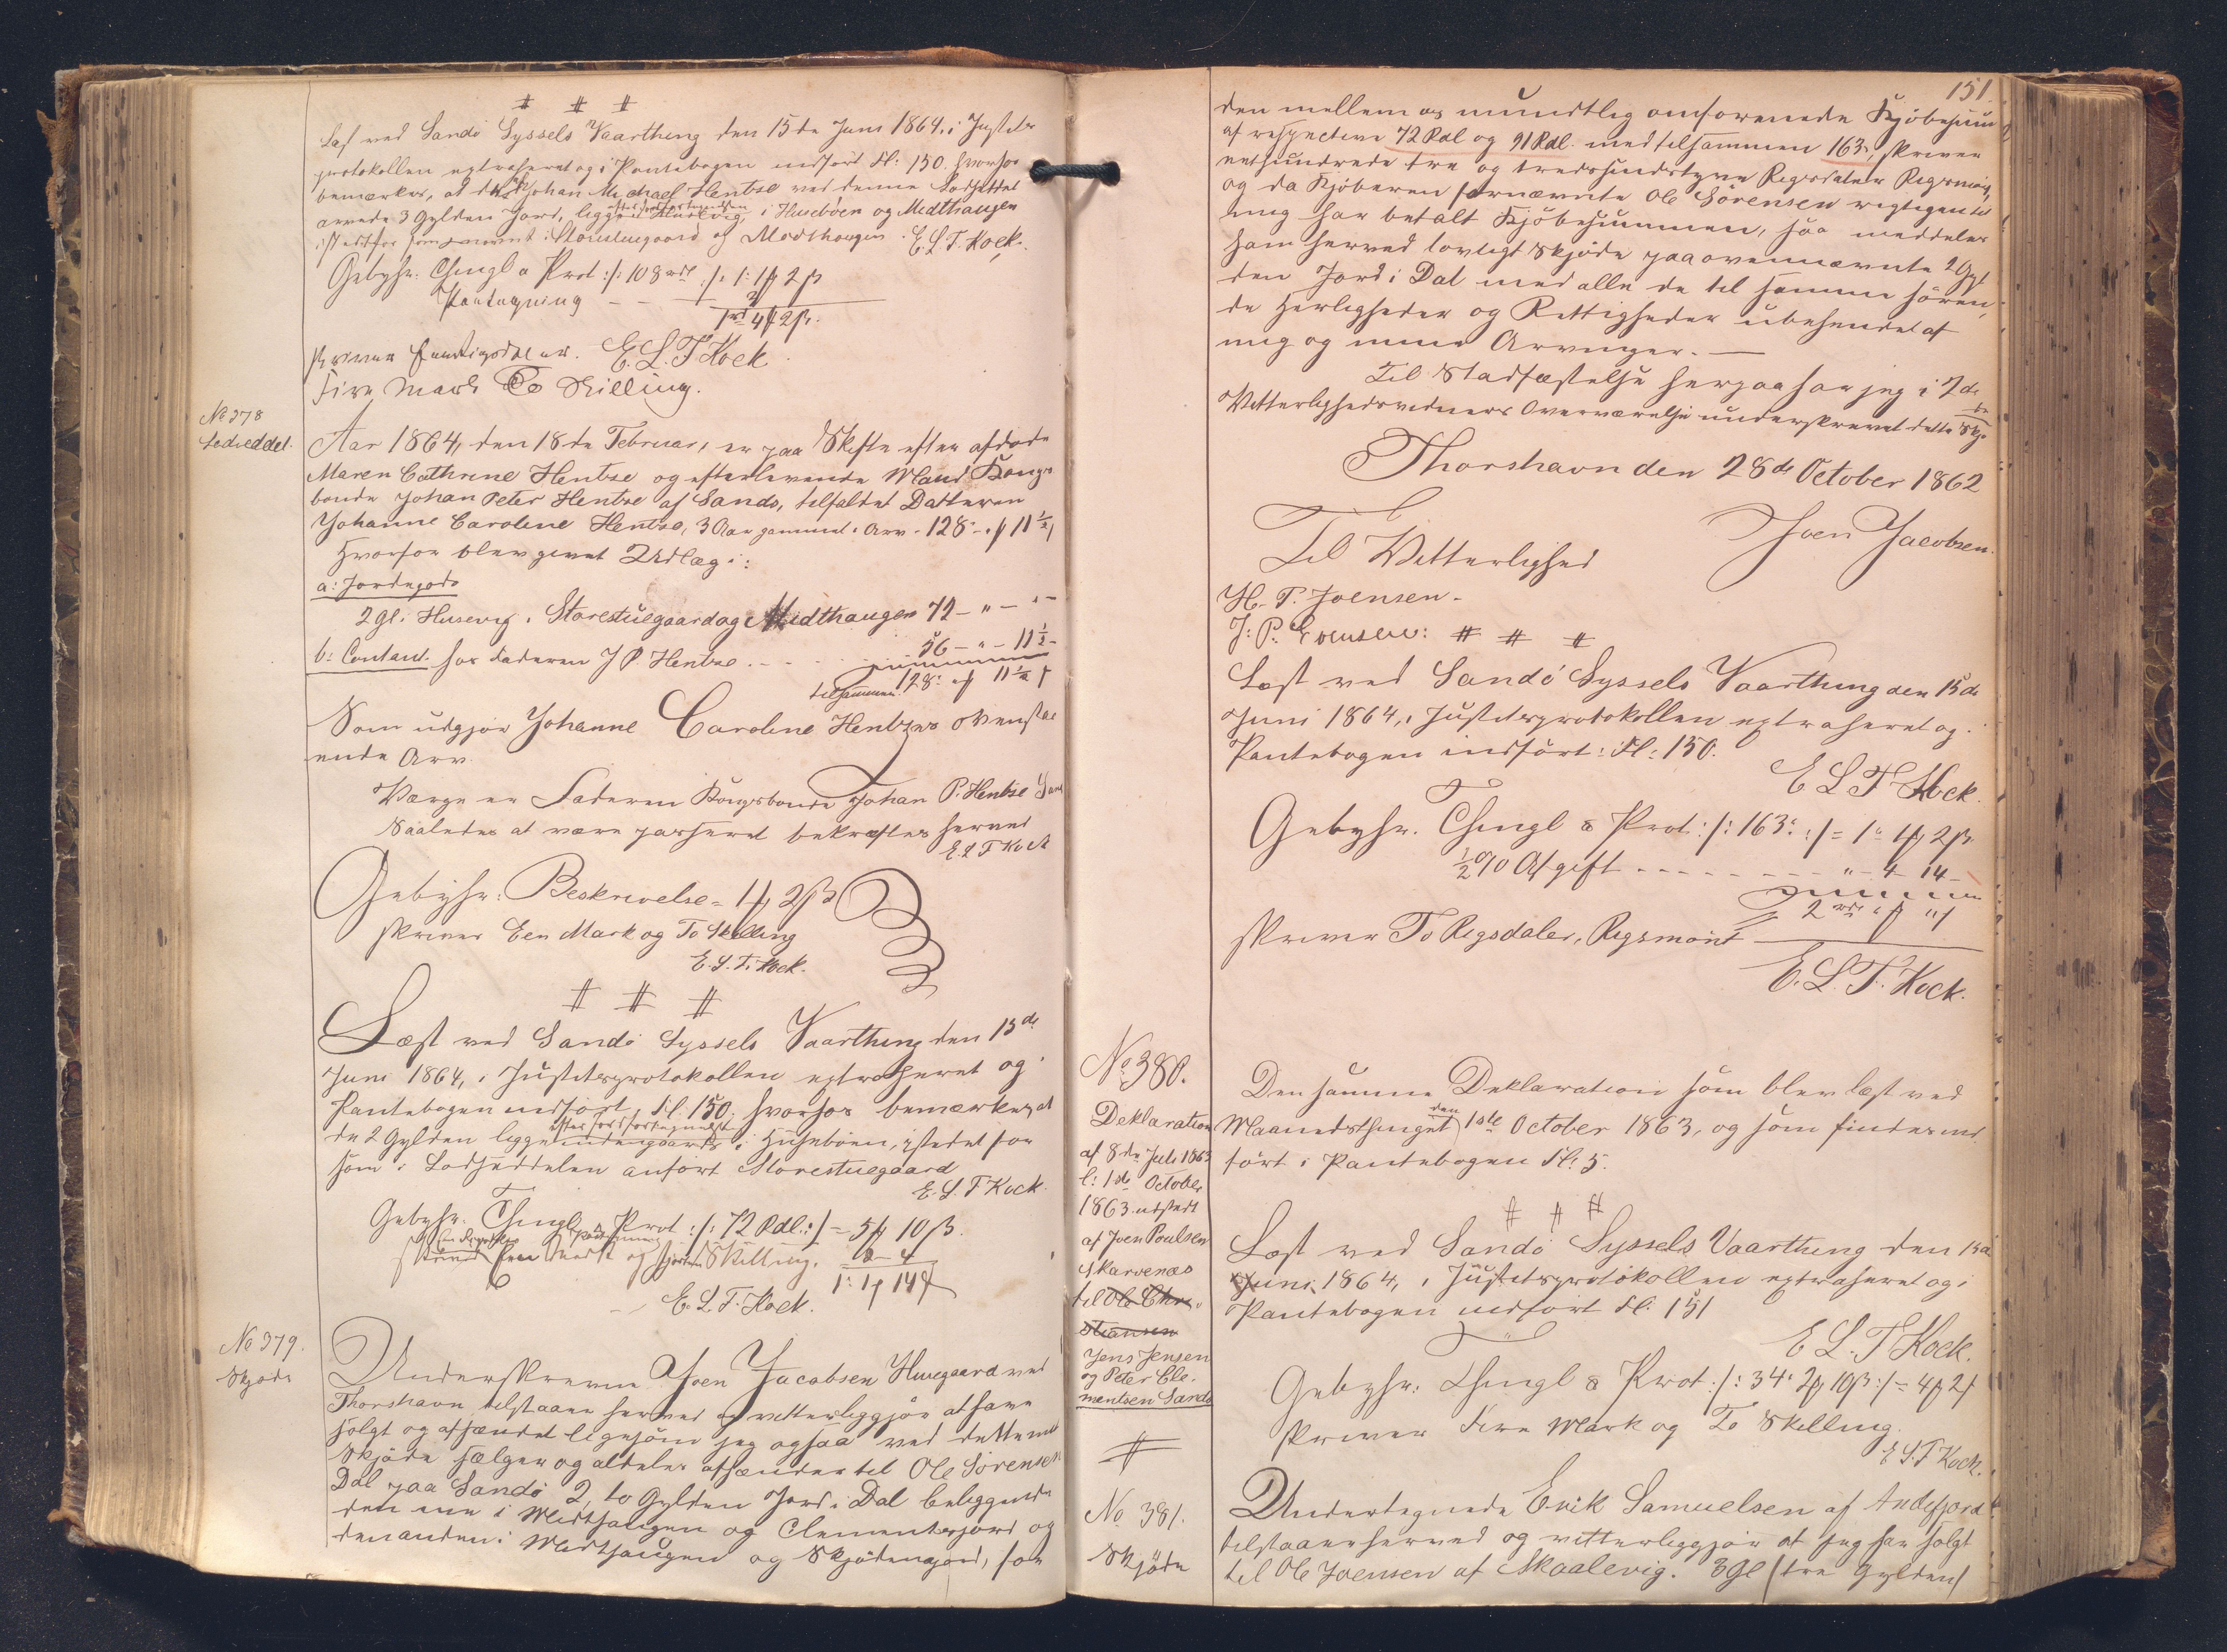 # # #
Læst ved Sandö Syssels Vaarthing den 15de Juni 1864, i Justits
protokollen extraheret og i Pantebogen indført Fl: 150. hvorhos
bemærkes, at de af Johan Michael Hentze ved denne Lodseddel
arvede 3 Gylden Jord, ligger efter Jordfortegnelsen i Husevig, i Huseböen og Midthaugen
istedetfor som nævnt: Storestuegaard og Midthaugen. E. L. T. Kock.
Gebyhr. Thingl & Prot :/: 108 rdl :/: 1: 1 ƒ 2 β
Paategning - - - 3 -
1 rd 4 ƒ 2 β.
skriver En Rigsdaler. E. L. T. Kock.
Fire Mark To Skilling.
No 378
Lodseddel.
Aar 1864, den 18de Februar, er paa Skifte efter afdøde
Maren Cathrine Hentze og efterlevende Mand Kongs
bonde Johan Peter Hentze af Sands, tilfaldet Datteren
Johanne Caroline Hentze, 3 Aar gammel i Arv - 128 - " ƒ 11½ β
Hvorfor blev givet Udlæg i:
a: Jordegods
2 gl. i Husevig, i Storestuegaard og Midthaugen 72 - " - " -
b: Contant. hos Faderen J P. Hentze . - - 56 - " - 11½ -
tilsammen 128: " ƒ 11½ β
Som udgjør Johanne Caroline Hentzes ovenstaa
ende Arv.
Værge er Faderen Kongsbonde Johan P. Hentze Sand
Saaledes at være passeret bekræftes herved
E. L T Kock
Gebyhr: Beskrivelse = 1 ƒ, 2 β
skriver Een Mark og To Skilling
E. L. T. Kock.
# # #
Læst ved Sandö Syssels Vaarthing den 15de
Juni 1864, i Justitsprotokollen extraheret og i
Pantebogen indført, Fl. 150; hvorhos bemærkes at
de 2 Gylden ligge efter Jordfortegnelsen indengaards i Huseböen, istedet for
som i Lodseddelen anført Storestuegaard
E. L. T Kock.
Gebyhr. Thingl & Prot :/: 72 Rdl. :/ = 5 ƒ 10 β.
Paategning 2 - 4
skriver En Rigsdaler Een Mark og fjorten Skilling. 1: 1 ƒ 14 β
E. L. T. Kock.
No 379.
Skjøde
Underskrevne Joen Jacobsen Huusgaard ved
Thorshavn tilstaaer herved og vitterliggjør at have
solgt og afhændet ligesom jeg ogsaa ved dette mit
Skjøde sælger og aldeles afhænder til Ole Sörensen
Dal paa Sandö 2, to Gylden Jord i Dal beliggende
den ene i Midthaugen og Clementsjord og
den anden i Midthaugen og Skjödenajord, for
151.
den mellem os mundtlig omforenede Kjøbesum
af respective 72 Rdl og 91 Rdl. med tilsammen 163, skriver
eethundrede tre og tredssindstyve Rigsdaler Rigsmønt,
og da Kjøberen fornævnte Ole Sörensen rigtigen til
mig har betalt Kjøbesummen, saa meddeles
ham herved lovligt Skjøde paa ovennævnte 2 Gyl
den Jord i Dal med alle de til samme høren
de Herligheder og Rettigheder ubehindret af
mig og mine Arvinger. -
Til Stadfæstelse herpaa har jeg i 2de
Vitterlighedsvidners Overværelse underskrevet dette Skjøde
Thorshavn den 28de October 1862
Joen Jacobsen.
Til Vitterlighed
H. P. Joensen.
J: P: Evensen: # # #
Læst ved Sandö Syssels Vaarthing den 15de
Juni 1864, i Justitsprotokollen extraheret og i
Pantebogen indført: Fl: 150.
E L T Kock.
Gebyhr. Thingl & Prot: /: 163: :/ = 1 " 1 ƒ 2 β
½ % Afgift - - - - - - " - 4 - 14 -
2 rdl " ƒ " β
skriver To Rigsdaler, Rigsmønt
E. L. T. Kock.
No 380.
Deklaration
af 8de Juli 1863
l: 1ste October
1863 udstedt
af Joen Poulsen
Skarvenæs
til Ole Chri
stiansen
Jens Jensen
og Peter Cle.
mentsen Sands
#
Den samme Deklaration som blev læst ved
Maanedsthinget den 1ste October 1863, og som findes ind
ført i Pantebogen Fl. 5.
# # #
Læst ved Sandö Syssels Vaarthing den 15de
Juni 1864, i Justitsprotokollen extraheret og i
Pantebogen indført Fl. 151
E L. T Kock.
Gebyhr: Thingl & Prot :/: 34: 2 ƒ 10 β :/ = 4 ƒ 2 β
skriver Fire Mark og To Skilling.
E. L. T Kock.
No 381.
Skjøde
Undertegnede Enik Samuelsen af Andefjord
tilstaaer herved og vitterliggjør at jeg har solgt
til Ole Joensen af Skaalevig. 3 Gl (tre Gylden)